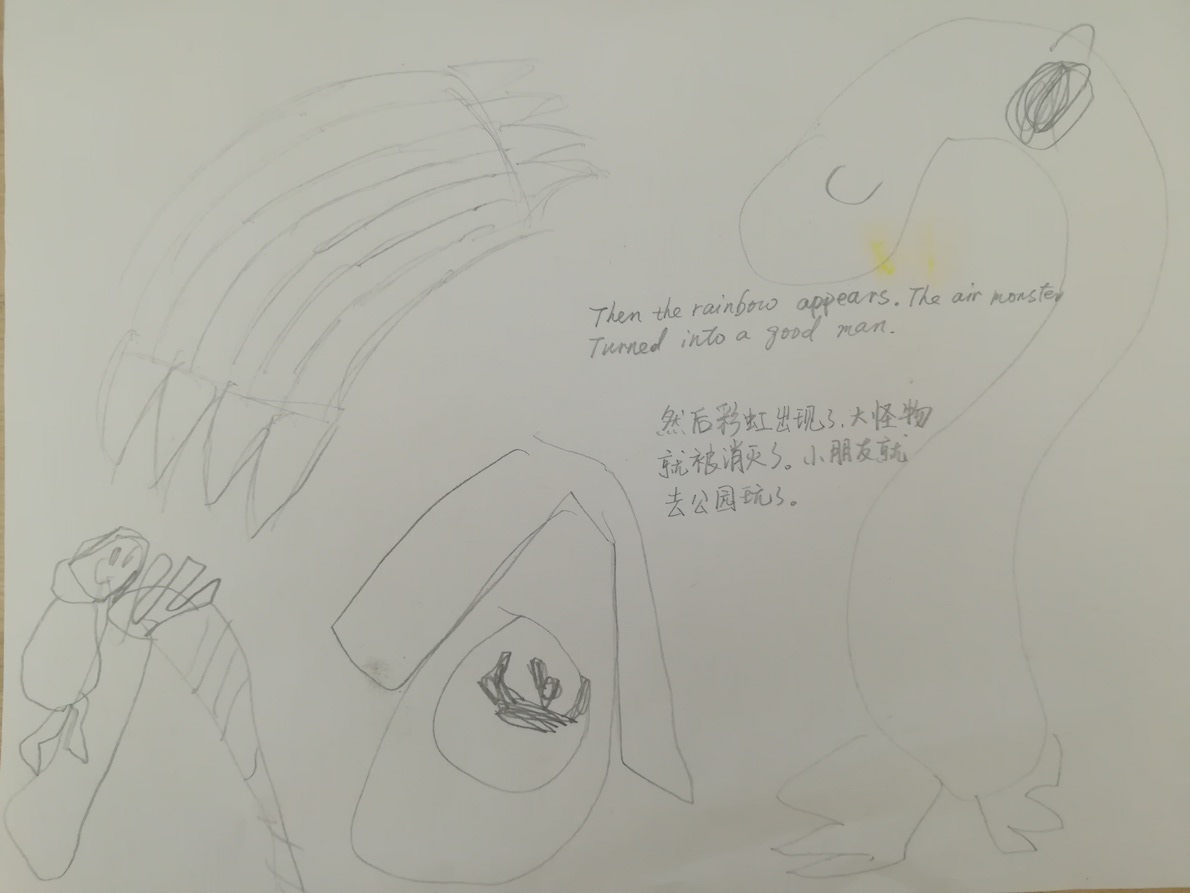 Then the rainbow appears. The air monster
Turned into a good man.
然后彩虹出现了.大怪物
就被消灭了。小朋友就
去公园玩了。